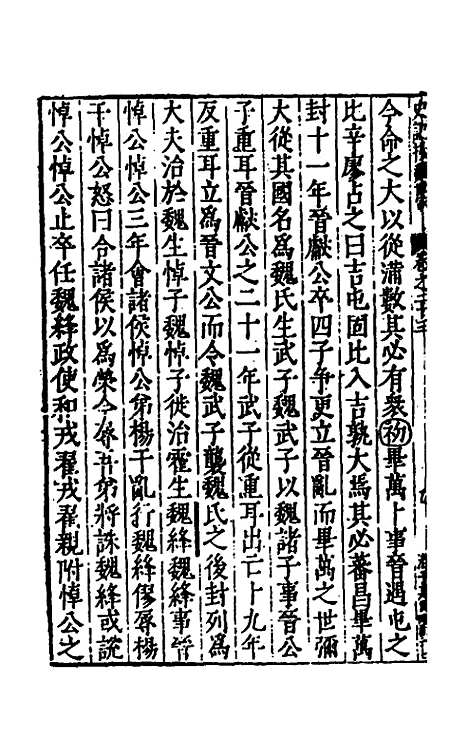 今命之大以從滿數其必有衆初畢萬卜事晉遇屯之
比辛廖占之曰吉屯固比入吉孰大焉其必蕃昌畢萬
封十一年晉獻公卒四子爭更立晉亂而畢萬之世彌
大從其國名爲魏氏生武子魏武子以魏諸子事晉公
子重耳晉獻公之二十一年武子從重耳出亡十九年
反重耳立爲晉文公而令魏武子襲魏氏之後封列爲
大夫治於魏生悼子魏悼子徙治霍生魏絳魏絳事晉
悼公悼公三年會諸侯悼公弟楊干亂行魏絳僇辱楊
干悼公怒曰合諸侯以爲榮今辱吾弟將誅魏絳或說
悼公悼公止卒任魏絳政使和戎翟戎翟親附悼公之